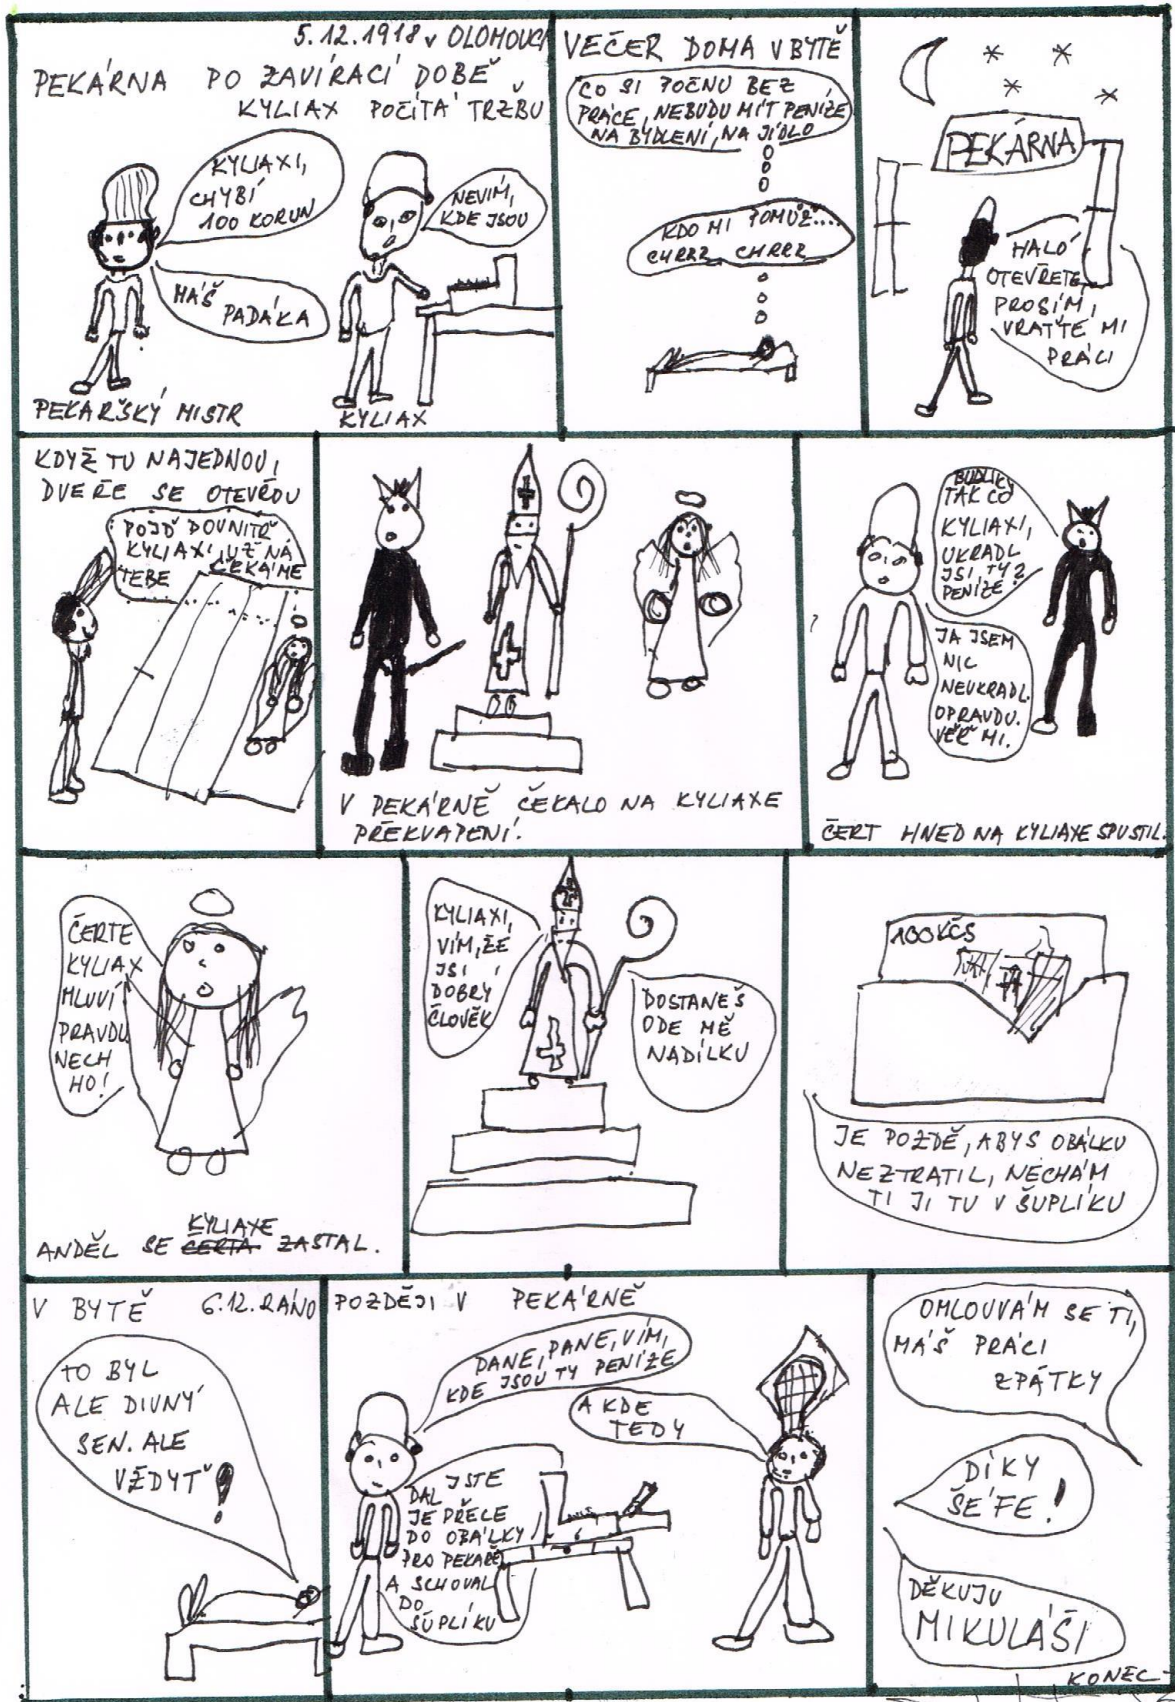 5.12.1918 v OLOMOUCI
PEKÁRNA PO ZAVÍRACÍ DOBĚ
KYLIAX POČÍTÁ TRŽBU
KYLIAXI,
CHYBÍ
100 KORUN
NEVÍM,
KDE JSOU
MÁŠ
PADÁKA
PEKAŘSKÝ MISTR
KYLIAX
VEČER DOMA V BYTĚ
CO SI POČNU BEZ
PRÁCE, NEBUDU MÍT PENÍZE
NA BYDLENÍ, NA JÍDLO
KDO MI POMŮŽ....
CHRRZ CHRRZ
PEKÁRNA
HALÓ
OTEVŘETE,
PROSÍM,
VRAŤTE MI
PRÁCI
KDYŽ TU NAJEDNOU,
DVEŘE SE OTEVŘOU
POJĎ DOVNITŘ
KYLIAXI, UŽ NA
TEBE ČEKÁME
V PEKÁRNĚ ČEKALO NA KYLIAXE
PŘEKVAPENÍ.
BUDLIKY
TAK CO
KYLIAXI,
UKRADL
JSI TY
PENÍZE?
JA JSEM
NIC
NEUKRADL.
OPRAVDU.
VĚŘ MI.
ČERT HNED NA KYLIAXE SPUSTIL.
ČERTE
KYLIAX
MLUVÍ
PRAVDU
NECH
HO!
KYLIAXE
ANDĚL SE ČERTA ZASTAL.
KYLIAXI,
VÍM, ŽE
JSI
DOBRÝ
ČLOVĚK
DOSTANEŠ
ODE MĚ
NADÍLKU
100 KČS
JE POZDĚ, ABYS OBÁLKU
NEZTRATIL, NECHÁM
TI JI TU V ŠUPLÍKU
V BYTĚ 6.12. RÁNO
TO BYL
ALE DIVNÝ
SEN. ALE
VŽDYŤ!
POZDĚJI V PEKÁRNĚ
PANE, PANE, VÍM,
KDE JSOU TY PENÍZE
A KDE
TEDY
DAL JSTE
JE PŘECE
DO OBÁLKY
PRO PEKAŘE
A SCHOVAL
DO
ŠUPLÍKU
OMLOUVÁM SE TI,
MÁŠ PRÁCI
ZPÁTKY
DÍKY
ŠÉFE!
DĚKUJU
MIKULÁŠI
KONEC